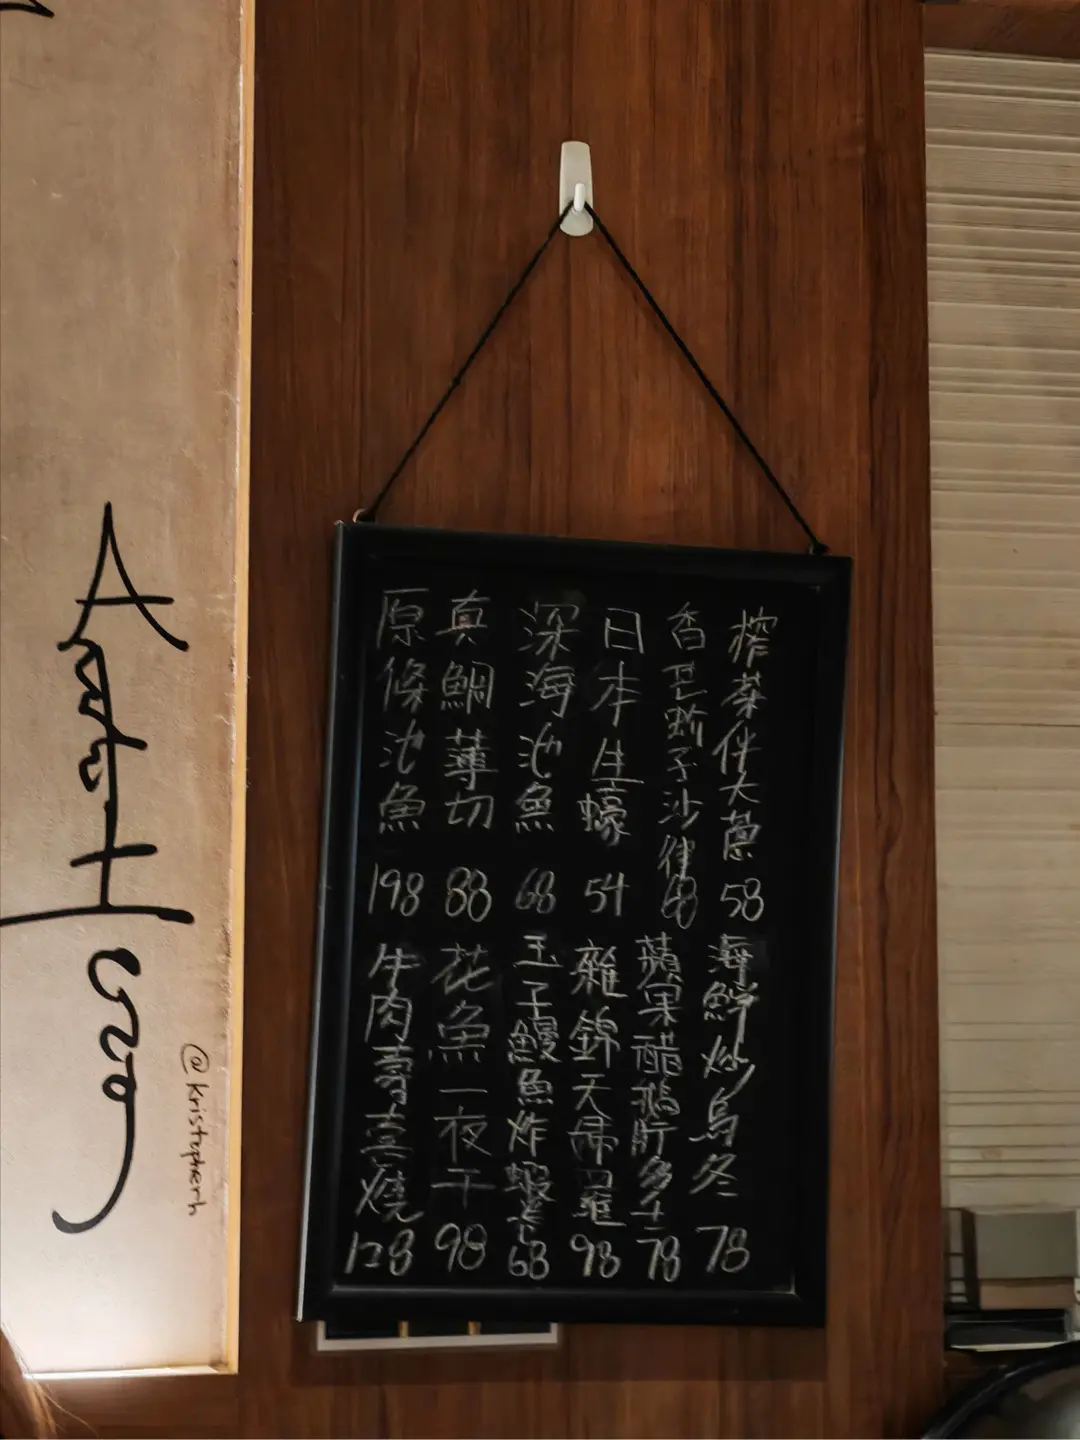 榨菜伴大蔥 58
香芒蚧子沙律 68
日本生蠔 54
深海池魚 68
真鯛薄切 88
原條池魚 198
海鮮炒烏冬 78
蘋果醋鵝肝多士 78
雜錦天婦羅 98
玉子鰻魚炸蝦卷 68
花魚一夜干 98
牛肉壽喜燒 128
@kristopherh